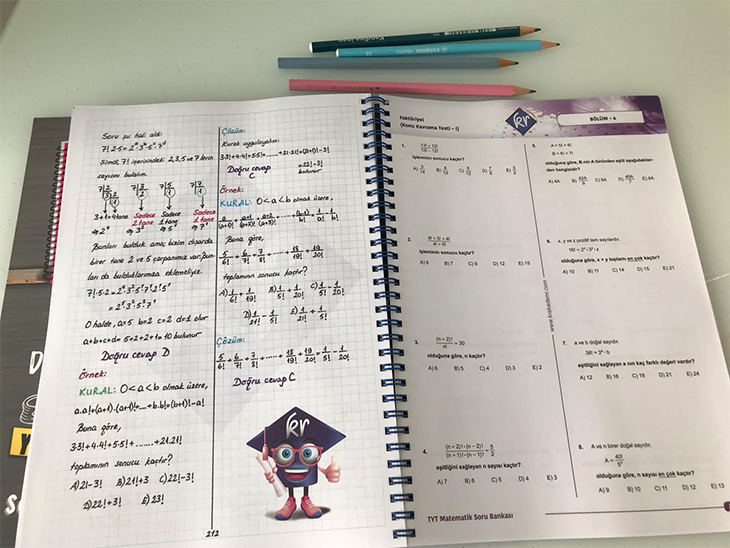 Soru şu hali aldı
7!.2.5 = 2ᵃ.3ᵇ.5ᶜ.7ᵈ
Şimdi, 7! içerisindeki 2,3,5 ve 7 lerin
sayısını bulalım.
3+1=4 tane
Sadece 2 tane
Sadece 1 tane
Sadece 1 tane
⇒ 2⁴ ⇒ 3² ⇒ 5¹ ⇒ 7¹
Bunları bulduk ama; bizim dışarda
birer tane 2 ve 5 çarpanımız var. Bun-
ları da bulduklarımıza eklemeliyiz.
7!.5.2 = 2⁴.3².5¹.7¹.2¹.5¹
= 2⁵.3².5².7¹
O halde, a=5 b=2 c=2 d=1 olur
a+b+c+d = 5+2+2+1=10 bulunur
Doğru cevap D
Örnek:
KURAL: 0<a<b olmak üzere,
a.a!+(a+1).(a+1)!+...+b.b!=(b+1)!-a!
Buna göre,
3.3!+4.4!+5.5!+.......+21.21!
toplamının sonucu kaçtır?
A) 21!-3! B) 21!+3 C) 22!-3!
D) 22!+3! E) 23!
Çözüm:
Kuralı uygulayalım:
3.3!+4.4!+5.5!+.....+21.21!=(21+1)!-3!
=22!-3!
bulunur
Doğru cevap
C
Örnek:
KURAL: 0<a<b olmak üzere,
a/(a+1)! + (a+1)/(a+2)! + (a+2)/(a+3)! + ...... + (b-1)/b! = 1/a! - 1/b!
Buna göre,
5/6! + 6/7! + 7/8! + ...... + 18/19! + 19/20!
toplamının sonucu kaçtır?
A) 1/6! + 1/19! B) 1/5! + 1/20! C) 1/5! - 1/20!
D) 1/21! - 1/5! E) 1/21! + 1/5!
Çözüm:
5/6! + 6/7! + 7/8! + ...... + 18/19! + 19/20! = 1/5! - 1/20!
Doğru cevap C
kr
212
Faktöriyel
(Konu Kavrama Testi – I)
kr
BÖLÜM – 6
1.
işleminin sonucu kaçtır?
2.
işleminin sonucu kaçtır?
A) 6 B) 7 C) 9 D) 12 E) 15
3. (n+2)!/n! = 30
olduğuna göre, n kaçtır?
A) 6 B) 5 C) 4 D) 3 E) 2
4. (n+2)!.(n-2)!/(n+1)!.(n-1)! = 5/2
eşitliğini sağlayan n sayısı kaçtır?
A) 7 B) 6 C) 5 D) 4 E) 3
TYT Matematik Soru Bankası
www.krakademi.com
5. A = 5! + 6!
B = 6! + 7!
olduğuna göre, B nin A türünden eşiti aşağıdakiler-
den hangisidir?
6. x, y ve z pozitif tam sayılardır.
olduğuna göre, x + y toplamı en çok kaçtır?
A) 10 B) 11 C) 14 D) 15 E) 21
7. a ve b doğal sayıdır.
38! = 3ᵃ.b
eşitliğini sağlayan a nın kaç farklı değeri vardır?
A) 12 B) 16 C) 18 D) 21 E) 24
8. A ve n birer doğal sayıdır.
A = 40!/5ⁿ
olduğuna göre, n sayısı en çok kaçtır?
A) 9 B) 10 C) 11 D) 12 E) 13